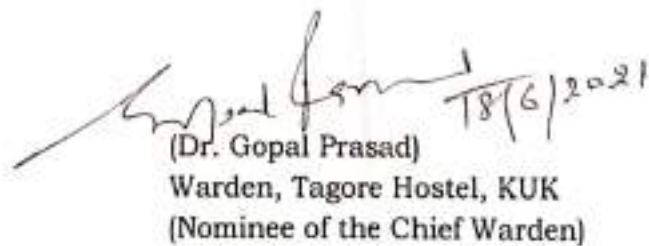 18/6/2021
(Dr. Gopal Prasad)
Warden, Tagore Hostel, KUK
(Nominee of the Chief Warden)